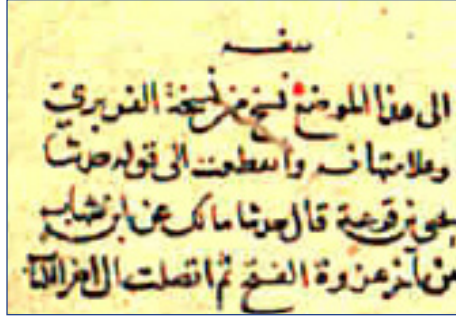 الى هذا الموضع نسخ من نسخة الفربري
وعلامتها ف وانقطعت الى قوله حدثنا
يحيى بن قزعة قال حدثنا مالك عن ابن شهاب
من آخر غزوة الفتح ثم اتصلت الى اخر الكتاب